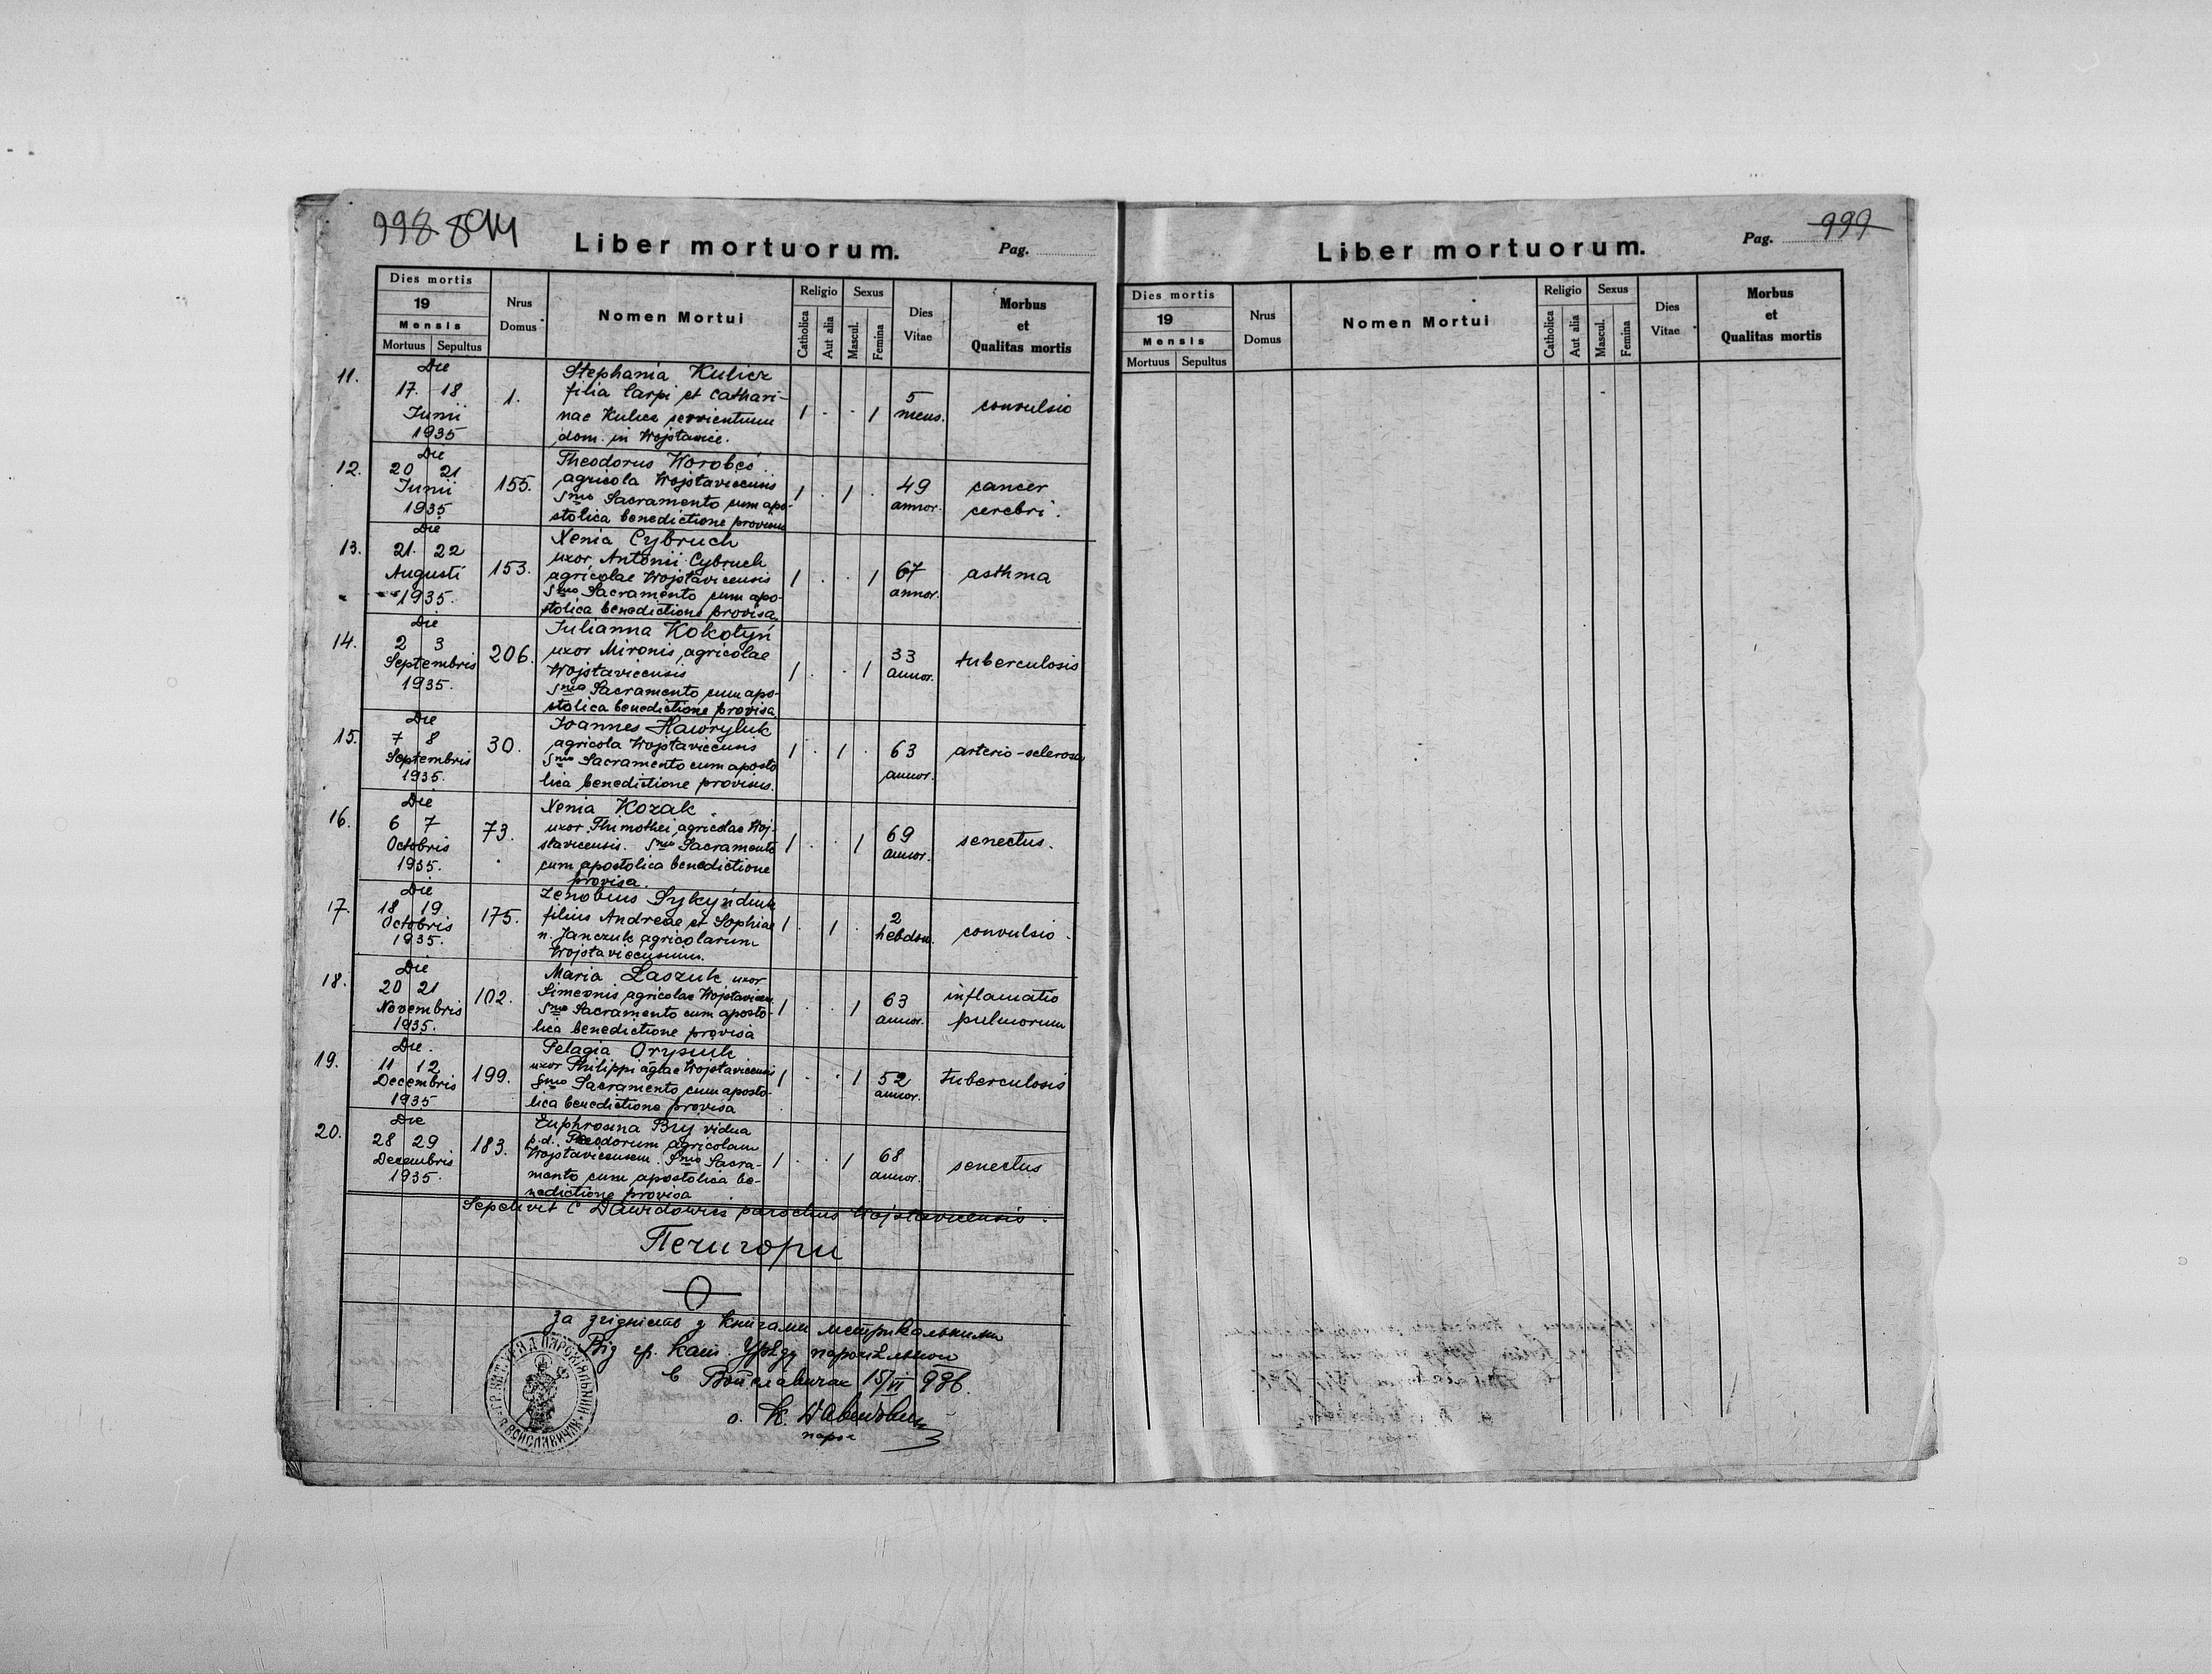 998 894
Liber mortuorum.
Pag.
Dies mortis
19
Mensis
Mortuus Sepultus
Nrus Domus
Nomen Mortui
Religio
Catholica
Aut alia
Sexus
Mascul.
Femina
Dies Vitae
Morbus et Qualitas mortis
11.
Die
17. 18
Junii
1935
1.
Stephania Kulicz
filia Carpi et Cathari-
nae Kulicz servientium
dom. in Wojsławice.
1 . . 1
5
mens.
convulsio
12.
Die
20 21
Junii
1935
155.
Theodorus Worobeć
agricola Wojstavicensis
Smo Sacramento cum apo-
stolica benedictione provisus
1 . 1 .
49
annor.
cancer
cerebri.
13.
Die
21. 22
Augusti
1935.
153.
Xenia Cybruch
uxor Antonii Cybruch
agricolae Wojstavicensis
Smo Sacramento cum apo-
stolica benedictione provisa
1 . . 1
67
annor.
asthma
14.
Die
2 3
Septembris
1935.
206.
Julianna Kokotyń
uxor Mironis agricolae
Wojstavicensis
Smo Sacramento cum apo-
stolica benedictione provisa
1 . . 1
33
annor.
tuberculosis
15.
Die
7 8
Septembris
1935.
30.
Joannes Hawryluk
agricola Wojstavicensis
Smo Sacramento cum aposto
lica benedictione provisus.
1 . 1 .
63
annor.
arterio-sclerosis
16.
Die
6 7
Octobris
1935.
73.
Xenia Kozak
uxor Thimothei agricolae Woj-
stavicensis. Smo Sacramento
cum apostolica benedictione
provisa.
1 . . 1
69
annor.
senectus.
17.
Die
18 19
Octobris
1935.
175.
Zenobius
filius Andreae et Sophiae
n. Janczuk agricolarum
Wojstavicensium.
1 . 1 .
2
hebdom.
convulsio.
18.
Die
20 21
Novembris
1935.
102.
Maria Łaszuk uxor
Simeonis agricolae Wojstavicen.
Smo Sacramento cum aposto-
lica benedictione provisa
1 . . 1
63
annor.
inflamatio
pulmorum
19.
Die.
11 12
Decembris
1935
199.
Pelagia Orysiuk
uxor Philippi aglae Wojstavicensis
Smo Sacramento cum aposto-
lica benedictione provisa
1 . . 1
52
annor.
tuberculosis
20.
Die
28 29
Decembris
1935.
183.
Euphrosina Bry vidua
p. d. Theodorum agricolam
Wojstavicensem. Smo Sacra-
mento cum apostolica be-
nedictione provisa
1 . . 1
68
annor.
senectus
Sepelivit C Dawidowicz parochus Wojstavicensis.
Печигори
За згідність з книгами метрикальними
Від гр. кат. Уряду парохіяльного
в Войславичах 15/VI 936.
о. К. Давидович
парох
ГР. КАТ. УРЯД ПАРОХІЯЛЬНИЙ В ВОЙСЛАВИЧАХ
Liber mortuorum.
Pag. 999
Dies mortis
19
Mensis
Mortuus Sepultus
Nrus Domus
Nomen Mortui
Religio
Catholica
Aut alia
Sexus
Mascul.
Femina
Dies Vitae
Morbus et Qualitas mortis